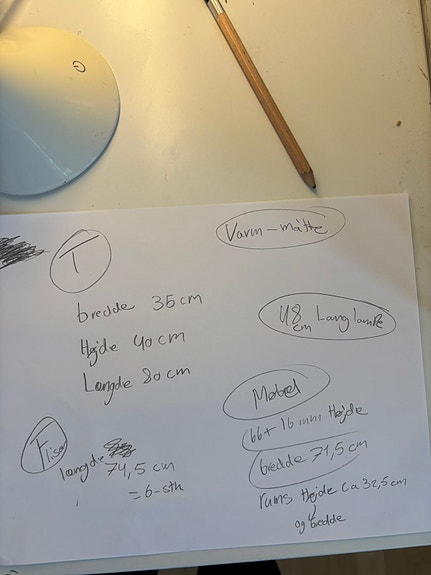 T
bredde 35 cm
Højde 40 cm
Længde 80 cm
Fliser
længde
74,5 cm
= 6-stk
Varm-måtte
48 cm Lang lampe
Møbel
66+16 mm Højde
bredde 71,5 cm
rums Højde ca 32,5 cm
og bredde